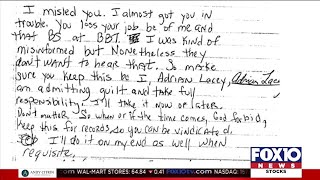 I misled you. I almost got you in
trouble. You loss your job be of me and
that BS at BBT. I was kind of
misinformed but Nonetheless they
don't want to hear that. So make
sure you keep this be I, Adrian Lacey, Adrian Lacey
am admitting guilt and take full
responsibility. I'll take it now or later.
Dont matter. So when or if the time comes, God forbid,
keep this for records so you can be vindicated.
I'll do it on my end as well when
requisite.
FOX10
NEWS
STOCKS
ANDY CITRIN
COM WAL-MART STORES: 64.84 ▲ 0.41 FOX10TV.COM NASDAQ: